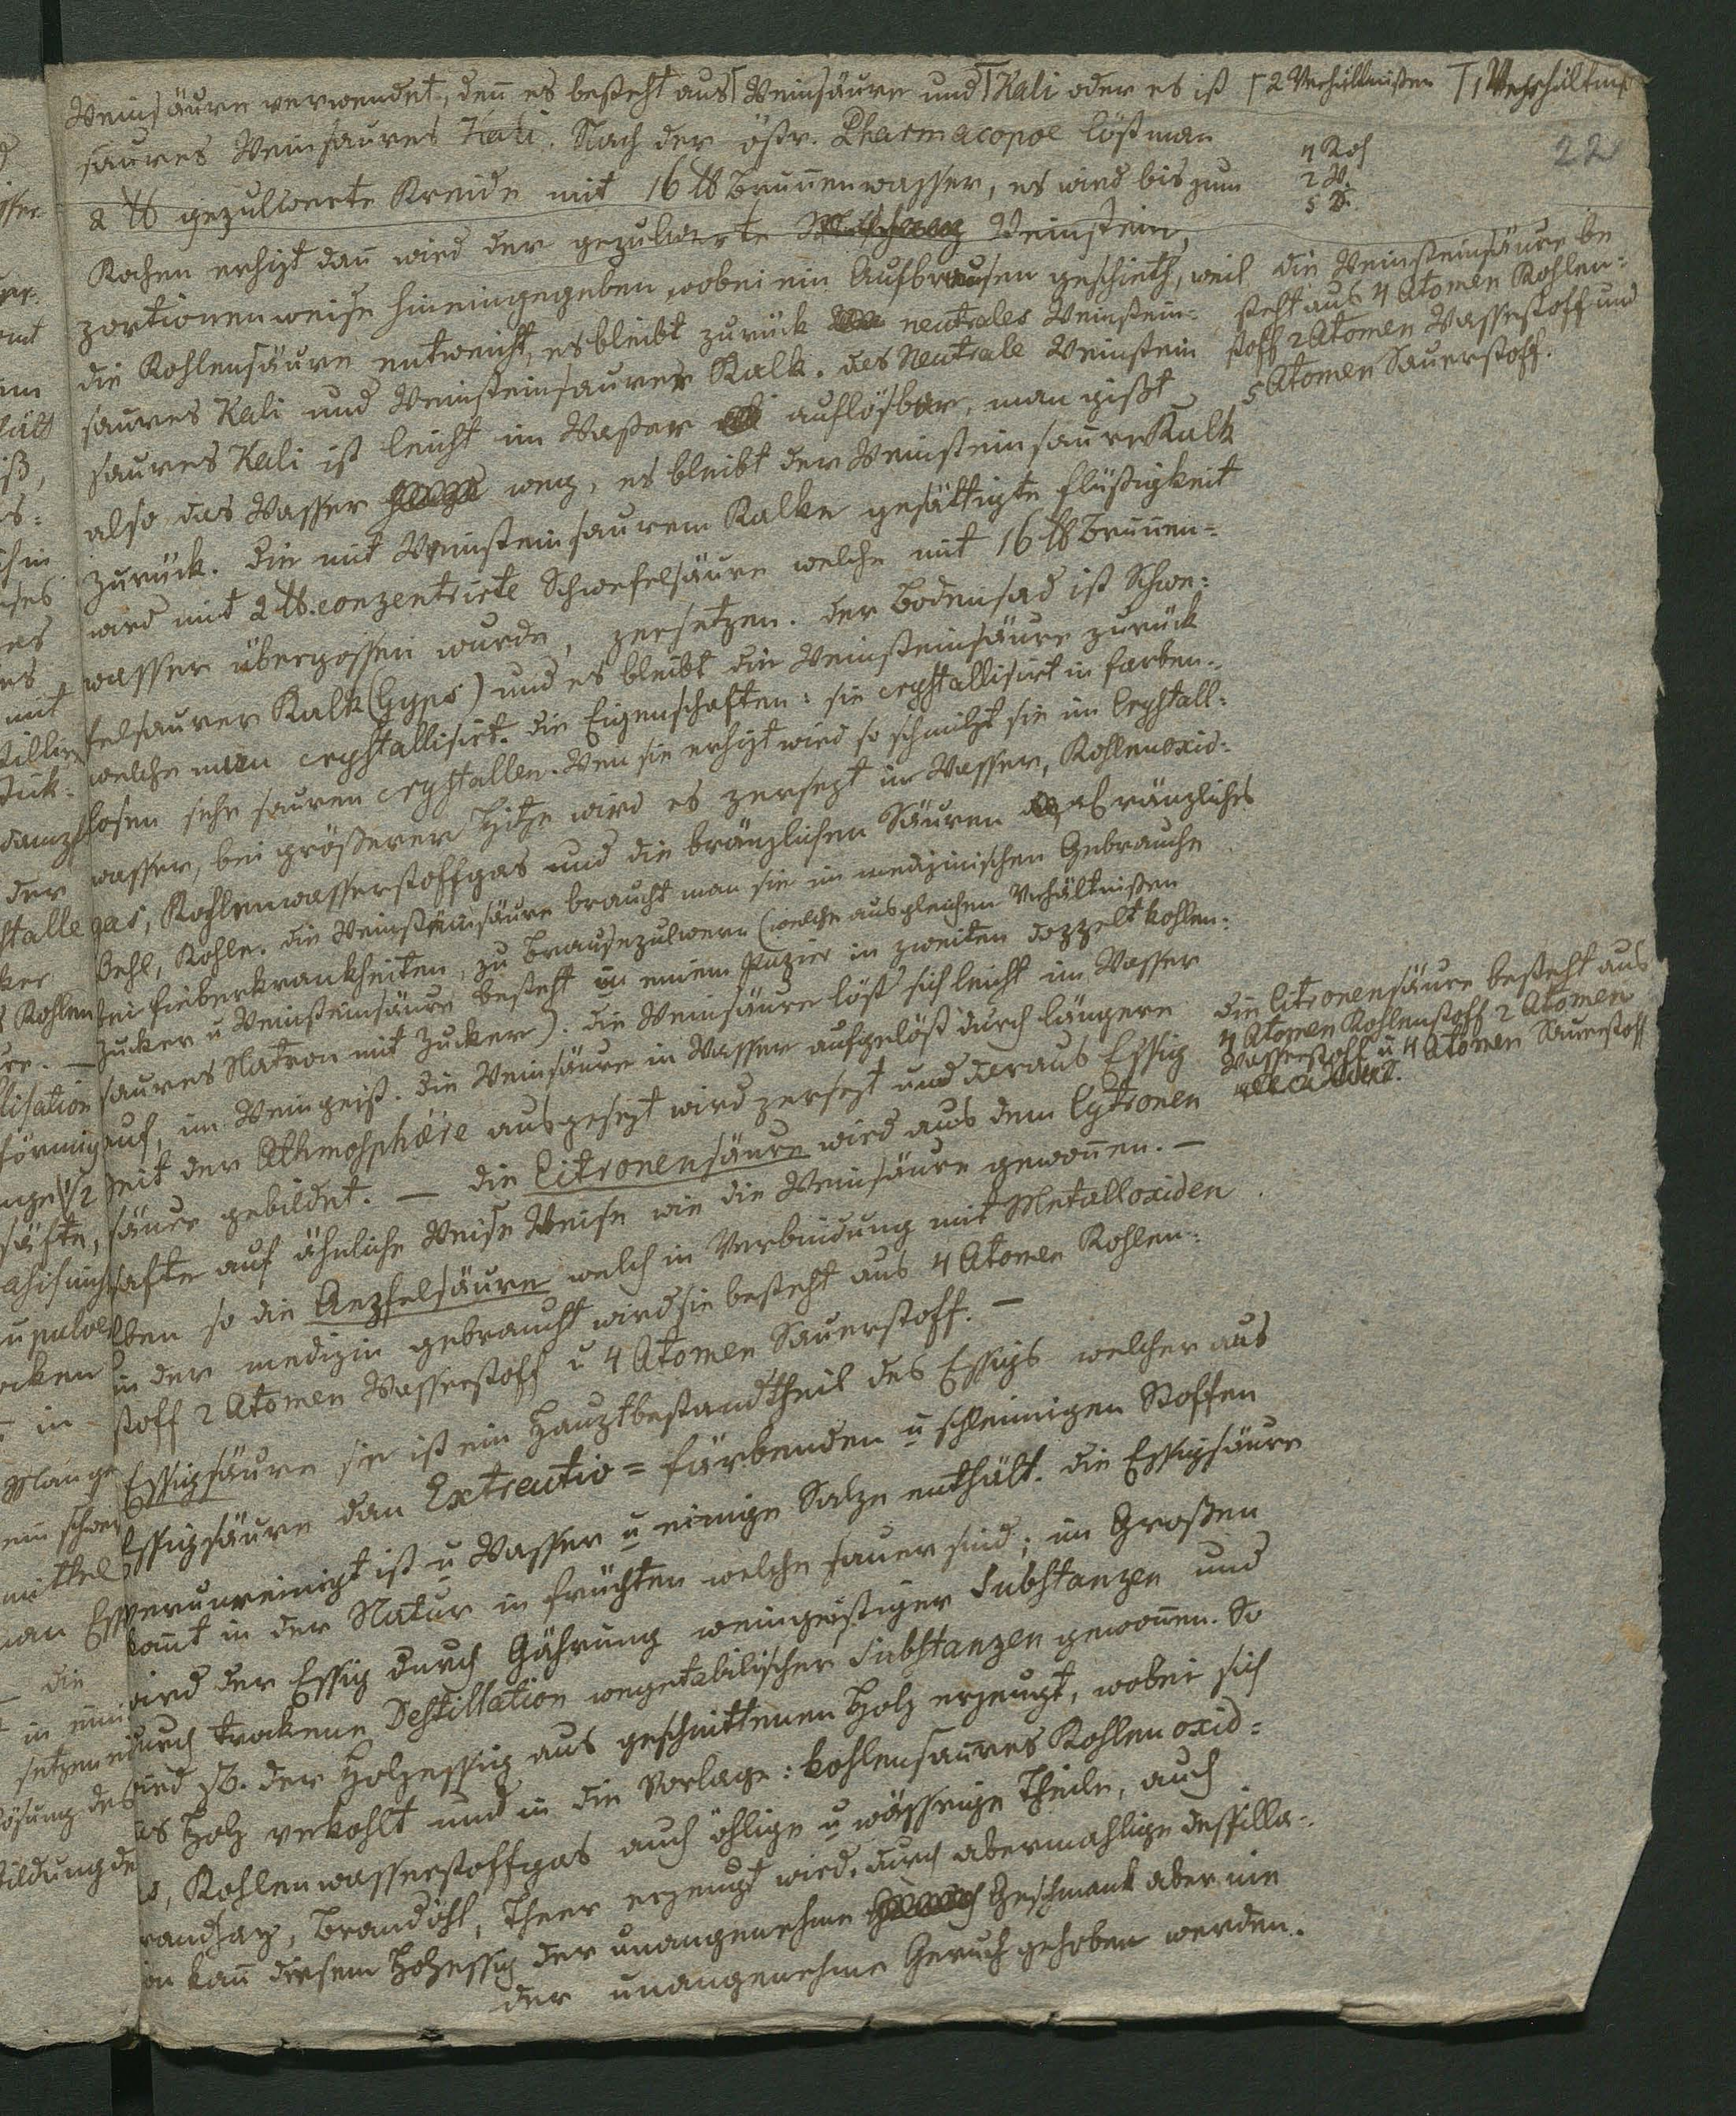 Weinsäure verwendet, deñ es besteht aus Weinsäure und Kali oder es ist
saures Weinsaures Kali. Nach der östr. Pharmacopoe löst man
2 ℔ gepulverte Kreide mit 16 ℔ Bruñenwasser, es wird bis zum
Kochen erhizt dañ wird der gepulverte Weinstein,
portionenweise hineingegeben wobei ein Aufbrausen geschieth, weil
die Kohlensäure entweicht, es bleibt zurück neutrales Weinstein=
saures Kali und Weinsteinsaurer Kalk. das Neutrale Weinstein
saures Kali ist leicht im Waßer auflösbar, man gißt
also das Wasser weg, es bleibt der Weinsteinsaure Kalk
zurück. Die mit Weinsteinsaurem Kalke gesättigte Flüßigkeit
wird mit 2 ℔. conzentrirte Schwefelsäure welche mit 16 ℔ Bruñen=
wasser übergossen wurde, zersetzen. der Bodensad ist Schwe=
felsaurer Kalk (Gyps) und es bleibt die Weinsteinsäure zurück
welche man crystallisirt. die Eigenschaften: sie crystallisirt in farben=
losen sehr sauren crystallen. Wen sie erhizt wird so schmilzt sie im Crystall=
wasser, bei größerer Hitze wird es zersezt in Wasser, Kohlenoxid=
gas, Kohlenwasserstoffgas und die bränzlichen Säuren bränzliches
Oehl, Kohle. die Weinsteinsäure braucht man sie im medizinischen Gebrauche
bei Fieberkrankheiten, zu Brausepulvern (welche aus gleichen Verhältnißen
Zucker u Weinsteinsäure besteht in einem Papier in zweiten doppelt kohlen=
saures Natron mit Zucker). die Weinsäure löst sich leicht im Wasser
auf, im Weingeist. die Weinsäure in Wasser aufgelöst durch längere
Zeit der Athmosphäre ausgesezt wird zersezt und daraus Essig
säure gebildet. — die Citronensäure wird aus dem Cytronen
safte auf ähnliche Weise Weise wie die Weinsäure gewoñen. —
Eben so die Aepfelsäure welch in Verbindung mit Metalloxiden
in der medizin gebraucht wird sie besteht aus 4 Atomen Kohlen=
stoff 2 Atomen Wasserstoff u 4 Atomen Sauerstoff. —
Essigsäure sie ist ein Hauptbestandtheil des Essigs welcher aus
Essigsäure dan Extractiv= färbenden u schleimigen Stoffen
verunreinigt ist u Wasser u einige Salze enthält. die Essigsäure
komt in der Natur in Früchten welche sauer sind; im Großen
wird der Essig durch Gährung weingeistiger Substanzen und
durch trockene Destillation wegetabilischer Substanzen gewoñen. So
wird zB. der Holzessig aus geschnittenen Holz erzeugt, wobei sich
das Holz verkohlt und in die Vorlage: kohlensaures Kohlenoxid=
, Kohlenwasserstoffgas auch öhlige u wässrige Theile, auch
, Brandöhl, Theer erzeugt wird. durch abermahlige destilla=
ion kañ diesem Holzessig der unangenehme Geschmack aber nie
der unangenehme Geruch gehoben werden.
2 Verhältnißen 1 Verhältniß
22
4 Koh
2 W.
5 S.
die Weinsteinsäure be
steht aus 4 Atomen Kohlen=
stoff 2 Atomen Wasserstoff und
5 Atomen Sauerstoff.
die Citronensäure besteht aus
4 Atomen Kohlenstoff 2 Atomen
Wasserstoff u 4 Atomen Sauerstoff